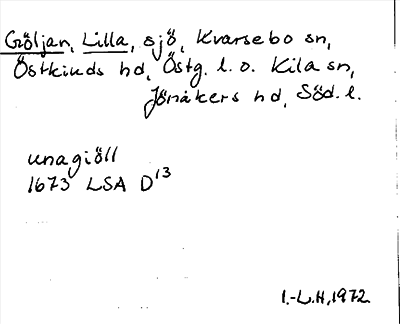 Göljan, Lilla, sjö, Kvarsebo sn,
Östkinds hd, Östg. l. o. Kila sn,
Jönåkers hd, Söd. l.
unagiöll
1673 LSA D13
I.-L.H, 1972